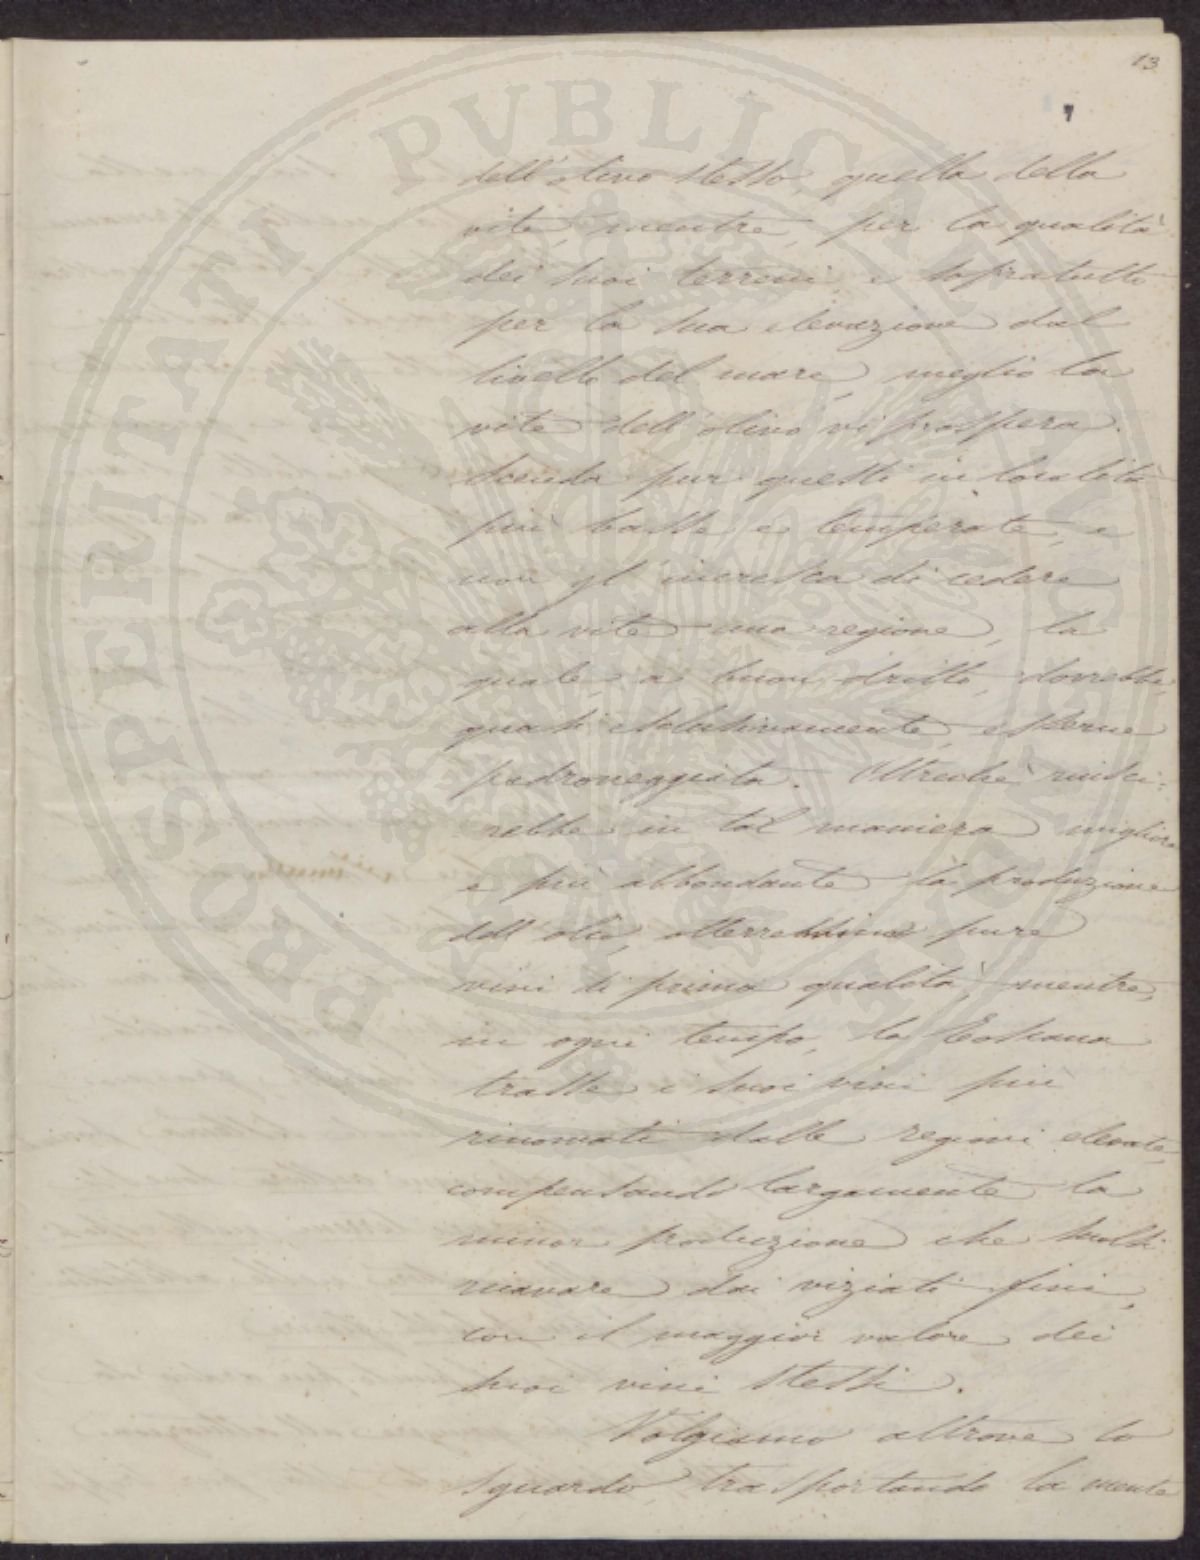 13
7
dell'olivo stesso, quella della
vite, mentre, per la qualità
dei suoi terreni, e sopratutto
per la sua elevazione dal
livello del mare, meglio la
vite dell'olivo vi prospera.
Scenda pur questi in località
più basse e temperate, e
non gl'incresca di cedere
alla vite una regione, la
quale, a buon dritto, dovrebbe
quasi esclusivamente esserne
padroneggiata. Oltrechè riusci-
rebbe in tal maniera migliore
e più abbondante la produzione
dell'olio, otterrebbonsi pure
vini di prima qualità, mentre,
in ogni tempo, la Toscana
trasse i suoi vini più
rinomati dalle regioni elevate,
compensando largamente la
minor produzione che suolsi
ricavare dai viziati fini,
con il maggior valore dei
suoi vini stessi.
Volgiamo altrove lo
sguardo, trasportando la mente
PROSPERITATI PVBLICAE AVGENDAE